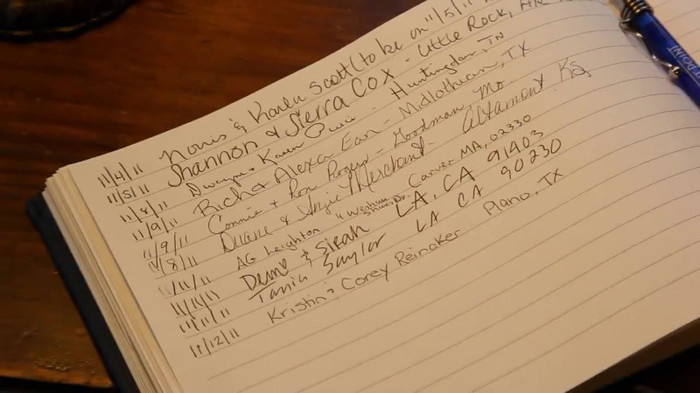 11/4/11 Norris & Karen Scott (to be on "/5/11"
11/5/11 Shannon & Sierra Cox - Little Rock, AR
11/8/11 Dwayne & Karen - Huntingdon, TN
11/9/11 Rich & Alexa Earl - Midlothian, TX
11/9/11 Connie & Ron Rogers - Goodman, Mo
11/8/11 Duane & Angie Merchant - Altamont Ks
11/11/11 AG Leighton Dr. Carver MA, 02330
11/11/11 & Sirah LA, CA 91403
11/11/11 Tania Saylor LA CA 90230
11/12/11 Kristin & Corey Reinaker Plano, TX
POINT